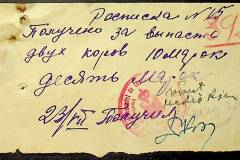 Расписка N 15
Получено за выпасть
двух коров 10 марок
десять Марок
23/VII Получил